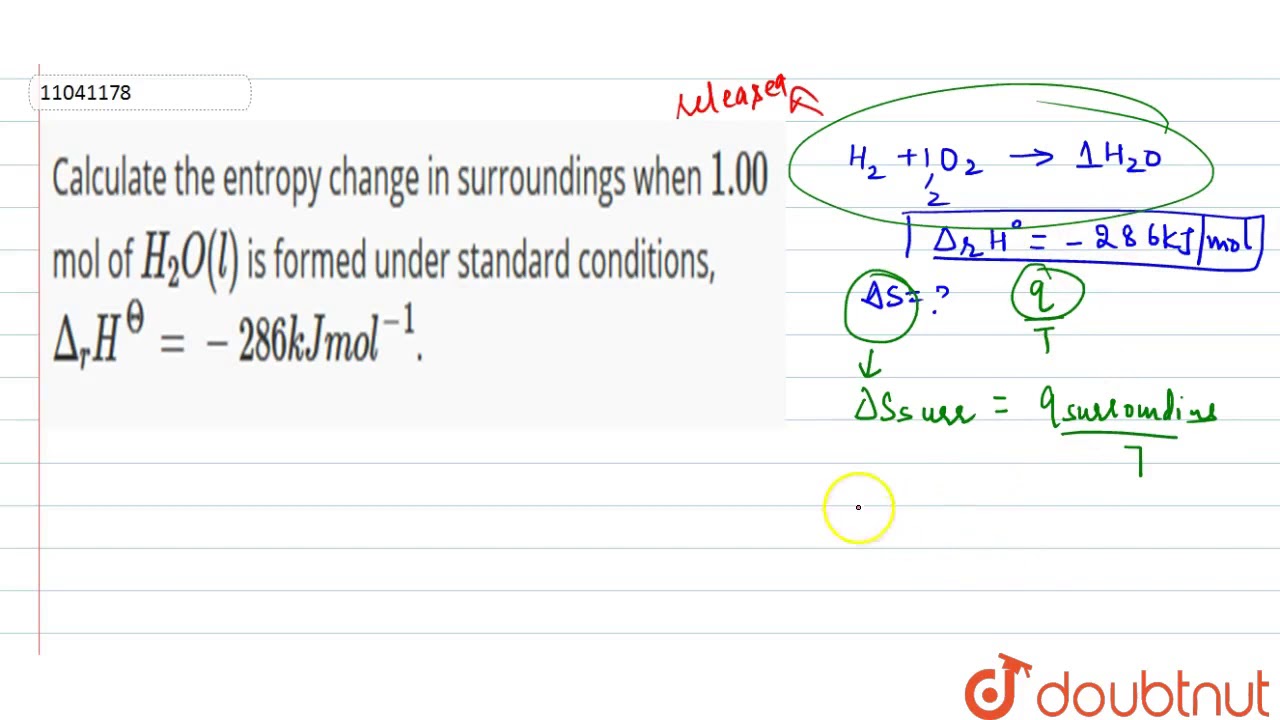 11041178
Calculate the entropy change in surroundings when 1.00
mol of H₂O(l) is formed under standard conditions,
ΔᵣH^Θ = −286kJmol⁻¹.
released
H₂ + 1/2 O₂ → 1H₂O
ΔᵣH° = −286kJ/mol
ΔS = ?
q/T
ΔSsurr = qsurrounding/T
doubtnut